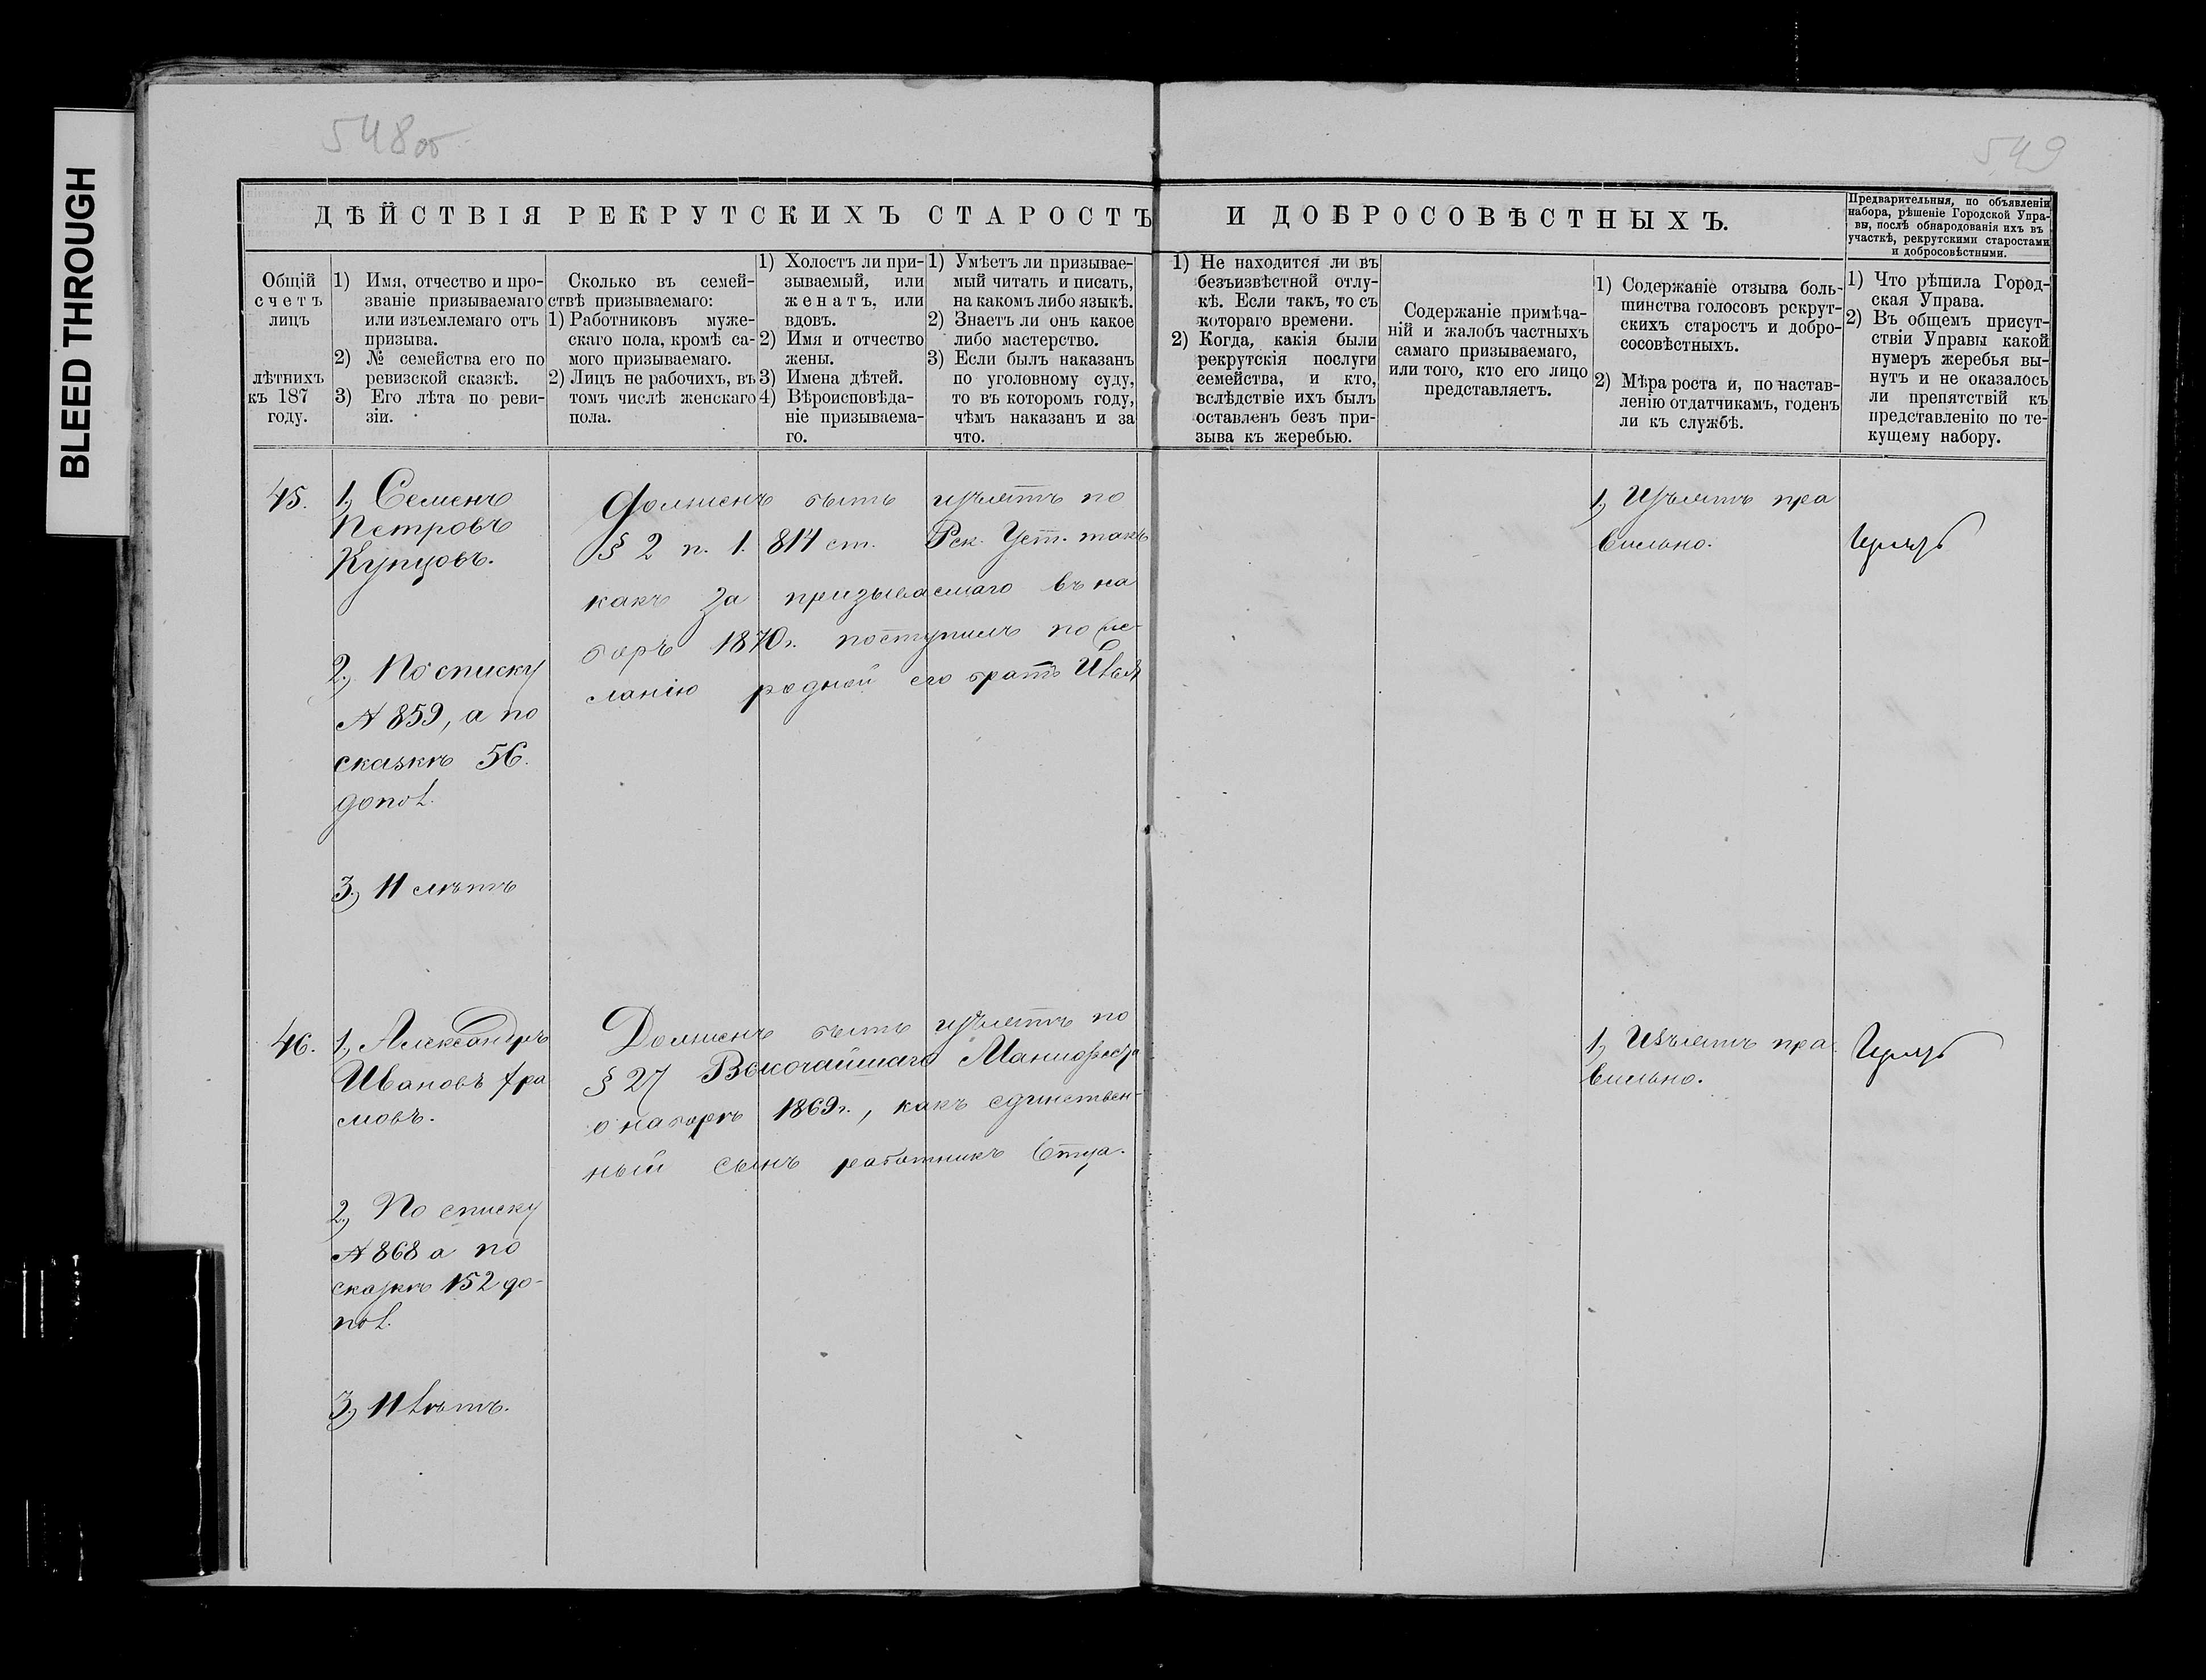 BLEED THROUGH
548об
549
ДѢЙСТВІЯ РЕКРУТСКИХЪ СТАРОСТЪ И ДОБРОСОВѢСТНЫХЪ.
Предварительныя, по объявленіи
набора, рѣшеніе Городской Упра-
вы, послѣ обнародованія ихъ въ
участкѣ, рекрутскими старостами
и добросовѣстными.
Общій
счетъ
лицъ
лѣтнихъ
къ 187
году.
1) Имя, отчество и про-
званіе призываемаго
или изъемлемаго отъ
призыва.
2) № семейства его по
ревизской сказкѣ.
3) Его лѣта по реви-
зіи.
Сколько въ семей-
ствѣ призываемаго:
1) Работниковъ муже-
скаго пола, кромѣ са-
мого призываемаго.
2) Лицъ не рабочихъ, въ
томъ числѣ женскаго
пола.
1) Холостъ ли при-
зываемый, или
женатъ, или
вдовъ.
2) Имя и отчество
жены.
3) Имена дѣтей.
4) Вѣроисповѣда-
ніе призываема-
го.
1) Умѣетъ ли призывае-
мый читать и писать,
на какомъ либо языкѣ.
2) Знаетъ ли онъ какое
либо мастерство.
3) Если былъ наказанъ
по уголовному суду,
то въ которомъ году,
чѣмъ наказанъ и за
что.
1) Не находится ли въ
безъизвѣстной отлу-
кѣ. Если такъ, то съ
котораго времени.
2) Когда, какія были
рекрутскія послуги
семейства, и кто,
вслѣдствіе ихъ былъ
оставленъ безъ при-
зыва къ жеребью.
Содержаніе примѣча-
ній и жалобъ частныхъ
самаго призываемаго,
или того, кто его лицо
представляетъ.
1) Содержаніе отзыва боль-
шинства голосовъ рекрут-
скихъ старостъ и добро-
сосовѣстныхъ.
2) Мѣра роста и, по настав-
ленію отдатчикамъ, годенъ
ли къ службѣ.
1) Что рѣшила Город-
ская Управа.
2) Въ общемъ присут-
ствіи Управы какой
нумеръ жеребья вы-
нутъ и не оказалось
ли препятствій къ
представленію по те-
кущему набору.
45.
1) Семенъ
Петровъ
Купцовъ.
2) По списку
№ 859, а по
сказкѣ 56.
допол.
3) 11 лѣтъ
Долженъ быть изъятъ по
§ 2 п. 1. 814 ст. Рек. Уст. такъ
какъ за призываемаго въ на
боръ 1870 г. поступилъ по же-
ланію родной его братъ
1) Изъятъ пра
вильно.
46.
1) Александръ
Ивановъ
мовъ.
2) По списку
№ 868 а по
сказкѣ 152 до-
пол.
3) 11 лѣтъ.
Долженъ быть изъятъ по
§ 27 Высочайшаго Манифеста
о наборѣ 1869 г., какъ единствен-
ный сынъ работникъ Отца.
1) Изъятъ пра
вильно.